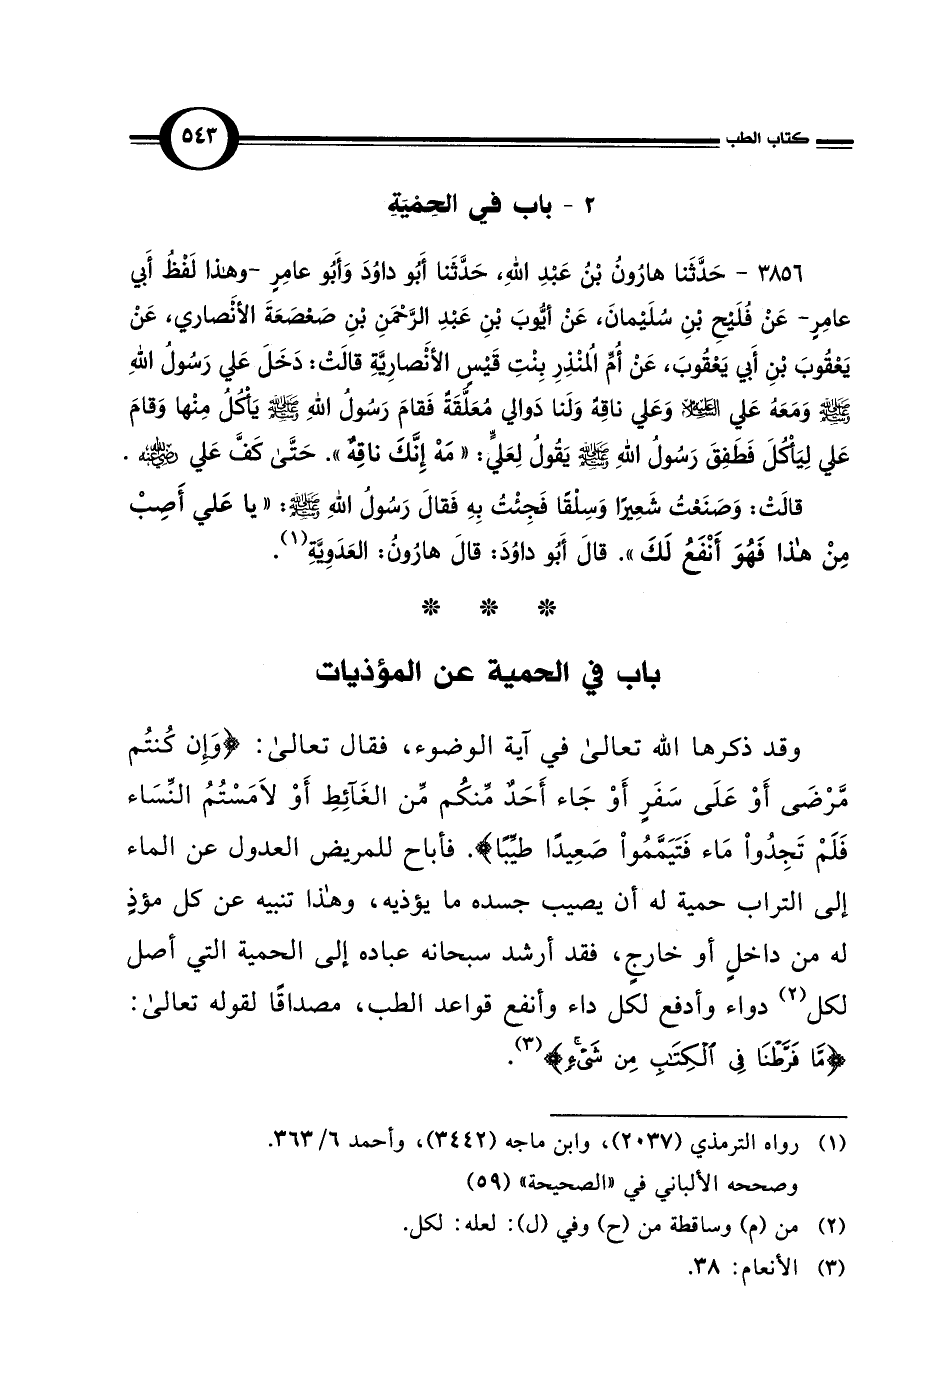 كتاب الطب ٥٤٣
٢ - باب في الحِمْيَةِ
٣٨٥٦ - حَدَّثَنا هارُونُ بْنُ عَبْدِ اللهِ، حَدَّثَنا أَبُو داوُدَ وَأَبُو عامِرٍ -وهذا لَفْظُ أَبي
عامِرٍ- عَنْ فُلَيْحِ بْنِ سُلَيْمانَ، عَنْ أَيُّوبَ بْنِ عَبْدِ الرَّحْمَنِ بْنِ صَعْصَعَةَ الأَنْصاري، عَنْ
يَعْقُوبَ بْنِ أَبي يَعْقُوبَ، عَنْ أُمِّ المُنْذِرِ بِنْتِ قَيْسٍ الأَنْصارِيَّةِ قالَتْ: دَخَلَ عَلي رَسُولُ اللهِ
ﷺ وَمَعَهُ عَلي عليه السلام وَعَلي ناقِهٌ وَلَنا دَوالي مُعَلَّقَةٌ فَقامَ رَسُولُ اللهِ ﷺ يَأْكُلُ مِنْها وَقامَ
عَلي لِيَأْكُلَ فَطَفِقَ رَسُولُ اللهِ ﷺ يَقُولُ لِعَليٍّ: «مَهْ إِنَّكَ ناقِهٌ». حَتَّى كَفَّ عَلي رضي الله عنه .
قالَتْ: وَصَنَعْتُ شَعِيرًا وَسِلْقًا فَجِئْتُ بِهِ فَقالَ رَسُولُ اللهِ ﷺ: «يا عَلي أَصِبْ
مِنْ هذا فَهُوَ أَنْفَعُ لَكَ». قالَ أَبُو داوُدَ: قالَ هارُونُ: العَدَوِيَّةِ(١).
* * *
باب في الحمية عن المؤذيات
وقد ذكرها الله تعالىٰ في آية الوضوء، فقال تعالىٰ: ﴿وَإِن كُنتُم
مَّرْضَى أَوْ عَلَى سَفَرٍ أَوْ جَاء أَحَدٌ مِّنكُم مِّن الغَآئِطِ أَوْ لاَمَسْتُمُ النِّسَاء
فَلَمْ تَجِدُواْ مَاء فَتَيَمَّمُواْ صَعِيدًا طَيِّبًا﴾. فأباح للمريض العدول عن الماء
إلى التراب حمية له أن يصيب جسده ما يؤذيه، وهٰذا تنبيه عن كل مؤذٍ
له من داخلٍ أو خارجٍ، فقد أرشد سبحانه عباده إلى الحمية التي أصل
لكل(٢) دواء وأدفع لكل داء وأنفع قواعد الطب، مصداقًا لقوله تعالىٰ:
﴿مَّا فَرَّطْنَا فِى ٱلْكِتَٰبِ مِن شَىْءٍ﴾(٣).
(١) رواه الترمذي (٢٠٣٧)، وابن ماجه (٣٤٤٢)، وأحمد ٦/ ٣٦٣.
وصححه الألباني في «الصحيحة» (٥٩)
(٢) من (م) وساقطة من (ح) وفي (ل): لعله: لكل.
(٣) الأنعام: ٣٨.